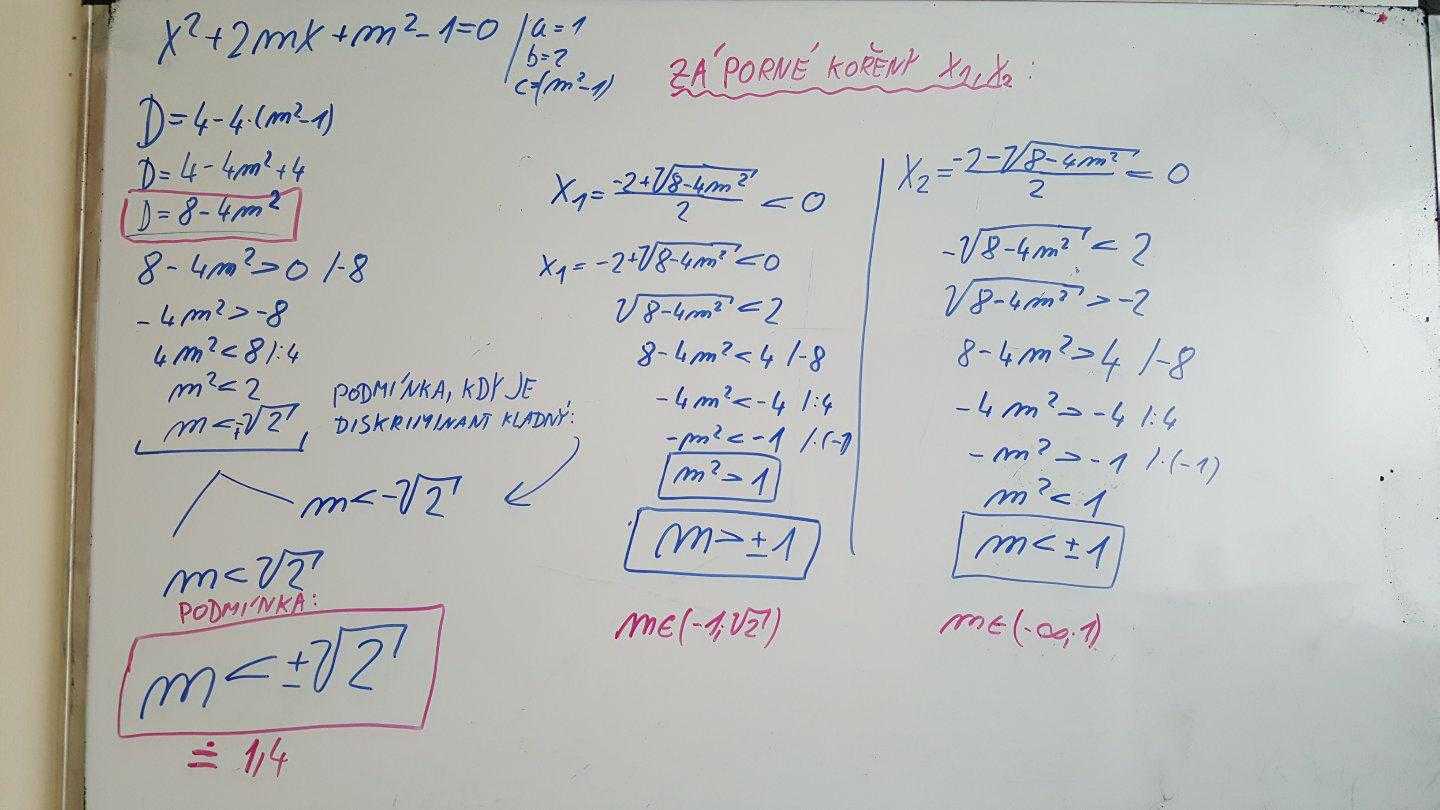 x²+2mx+m²-1=0
a=1
b=2
c=(m²-1)
D=4-4·(m²-1)
D=4-4m²+4
D=8-4m²
8-4m²>0 /-8
-4m²>-8
4m²<8 /:4
m²<2
m<±√2
PODMÍNKA, KDY JE
DISKRIMINANT KLADNÝ:
m<-√2
m<√2
PODMÍNKA:
m<±√2
≐ 1,4
ZÁPORNÉ KOŘENY x₁,x₂:
x₁=(-2+√(8-4m²))/2 <0
x₁=-2+√(8-4m²)<0
√(8-4m²)<2
8-4m²<4 /-8
-4m²<-4 /:4
-m²<-1 /·(-1)
m²>1
m>±1
m∈(-1;√2)
x₂=(-2-√(8-4m²))/2 <0
-√(8-4m²)<2
√(8-4m²)>-2
8-4m²>4 /-8
-4m²>-4 /:4
-m²>-1 /·(-1)
m²<1
m<±1
m∈(-∞;1)